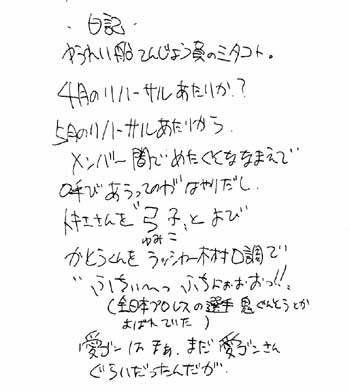 ・日記・
ゆうれい船てんじょう員のミタコト。
4月のリハーサルあたりか？
5月のリハーサルあたりから
メンバー間でめたくたななまえで
呼びあうってのがはやりだし
トキエさんを"弓子"とよび
ゆみこ
かとうくんをラッシャー木村口調で
"ふちぃへっ ふちぉぉおっ!!"
(全日本プロレスの選手 鬼ぐんとうとか
よばれていた)
愛ゴンはまぁ、まだ愛ゴンさん
ぐらいだったんだが、